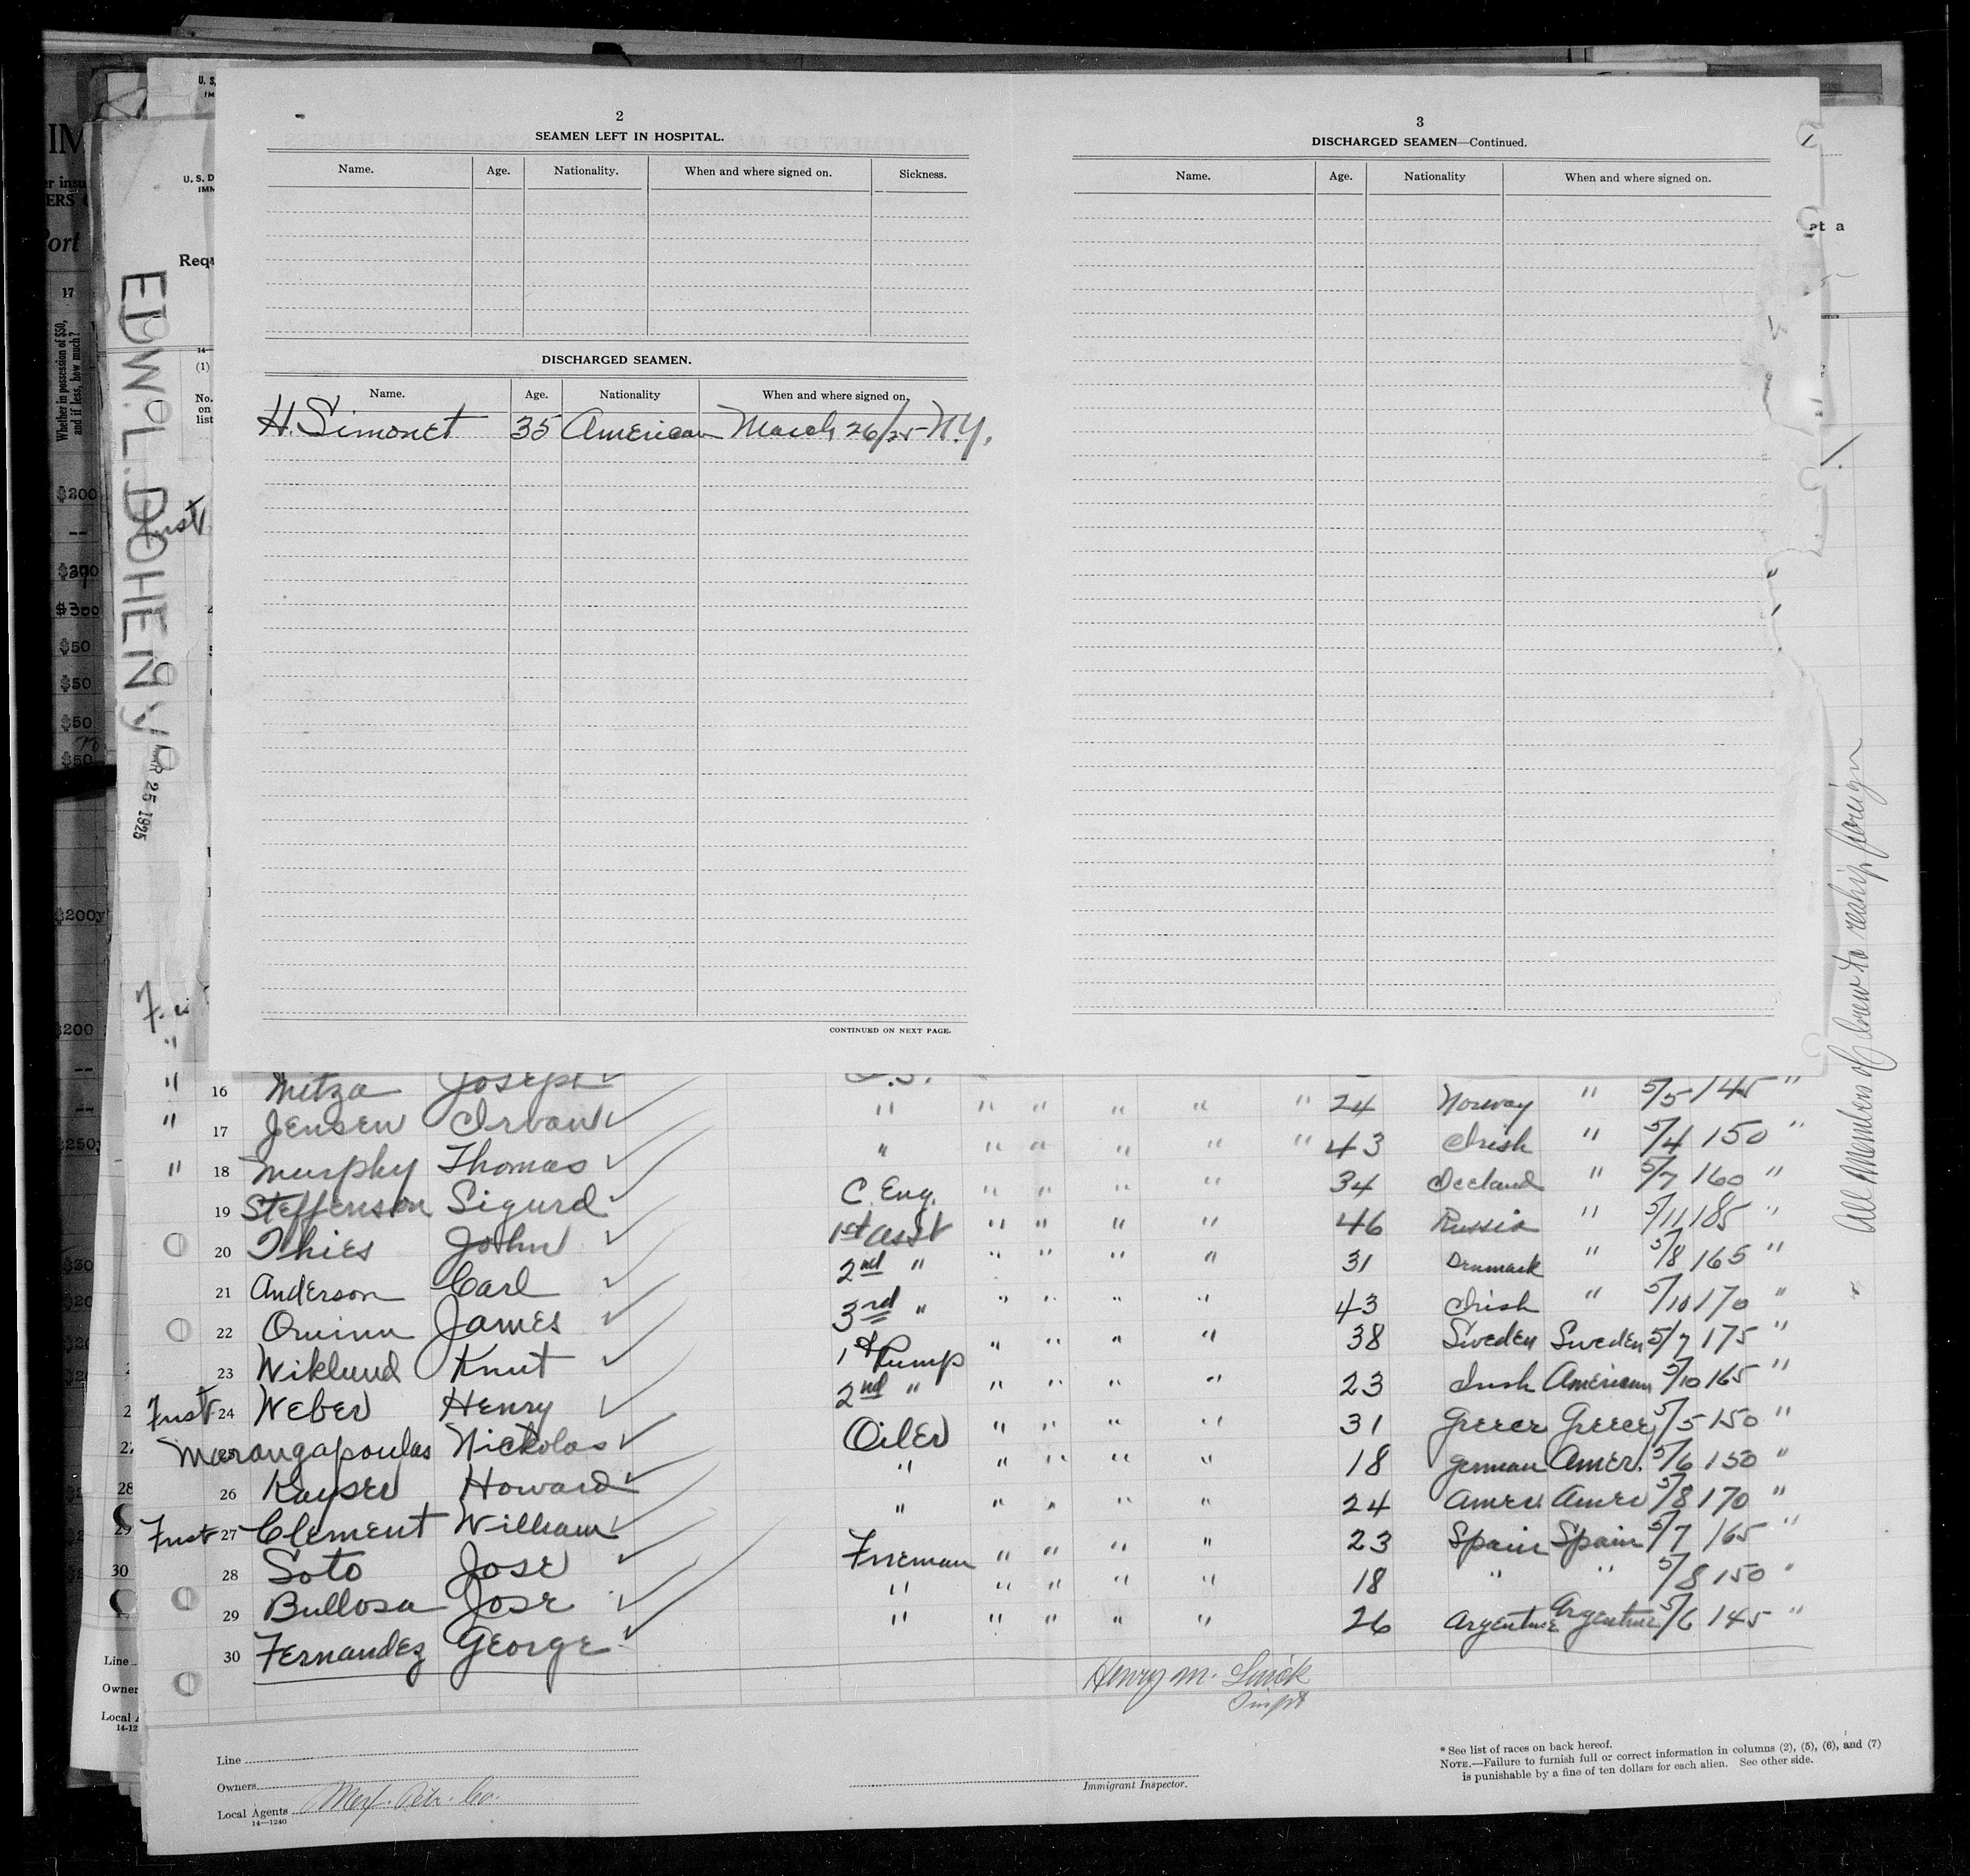 2
SEAMEN LEFT IN HOSPITAL.
Name. Age. Nationality. When and where signed on. Sickness.
DISCHARGED SEAMEN.
Name. Age. Nationality When and where signed on.
H. Simonet 35 American March 26/25 N.Y.
CONTINUED ON NEXT PAGE.
3
DISCHARGED SEAMEN—Continued.
Name. Age. Nationality When and where signed on.
EDW. L. DOHENY
25 1925
17
Whether in possession of $50, and if less, how much?
All Members of Crew to reship foreign
16 Mitza Joseph
" 17 Jensen " " " " " " 24 Norway " 5/5 145 "
" 18 Murphy Thomas " " " " " " 43 Irish " 5/4 150 "
19 Steffenson Sigurd C. Eng. " " " " 34 Iceland " 5/7 160 "
20 Thies John 1st asst " " " " 46 Russia " 5/11 185 "
21 Anderson Carl 2nd " " " " " 31 Denmark " 5/8 165 "
22 Quinn James 3rd " " " " " 43 Irish " 5/10 170 "
23 Wiklund Knut 1st Pump " " " " 38 Sweden Sweden 5/7 175 "
First 24 Weber Henry 2nd " " " " " 23 Irish American 5/10 165 "
Marangapoulas Nickolas Oiler " " " " 31 Greece Greece 5/5 150 "
26 Kayser Howard " " " " " 18 German Amer. 5/6 150 "
First 27 Clement William " " " " " 24 Amer Amer 5/8 170 "
28 Soto Jose Fireman " " " " 23 Spain Spain 5/7 165 "
29 Bullosa Jose " " " " " 18 " " 5/8 150 "
30 Fernandez George " " " " " 26 Argentine Argentine 5/6 145 "
Henry M.
Line
Owners
Local Agents Mex. Pet. Co.
14—1240
Immigrant Inspector.
* See list of races on back hereof.
NOTE.—Failure to furnish full or correct information in columns (2), (5), (6), and (7)
is punishable by a fine of ten dollars for each alien. See other side.